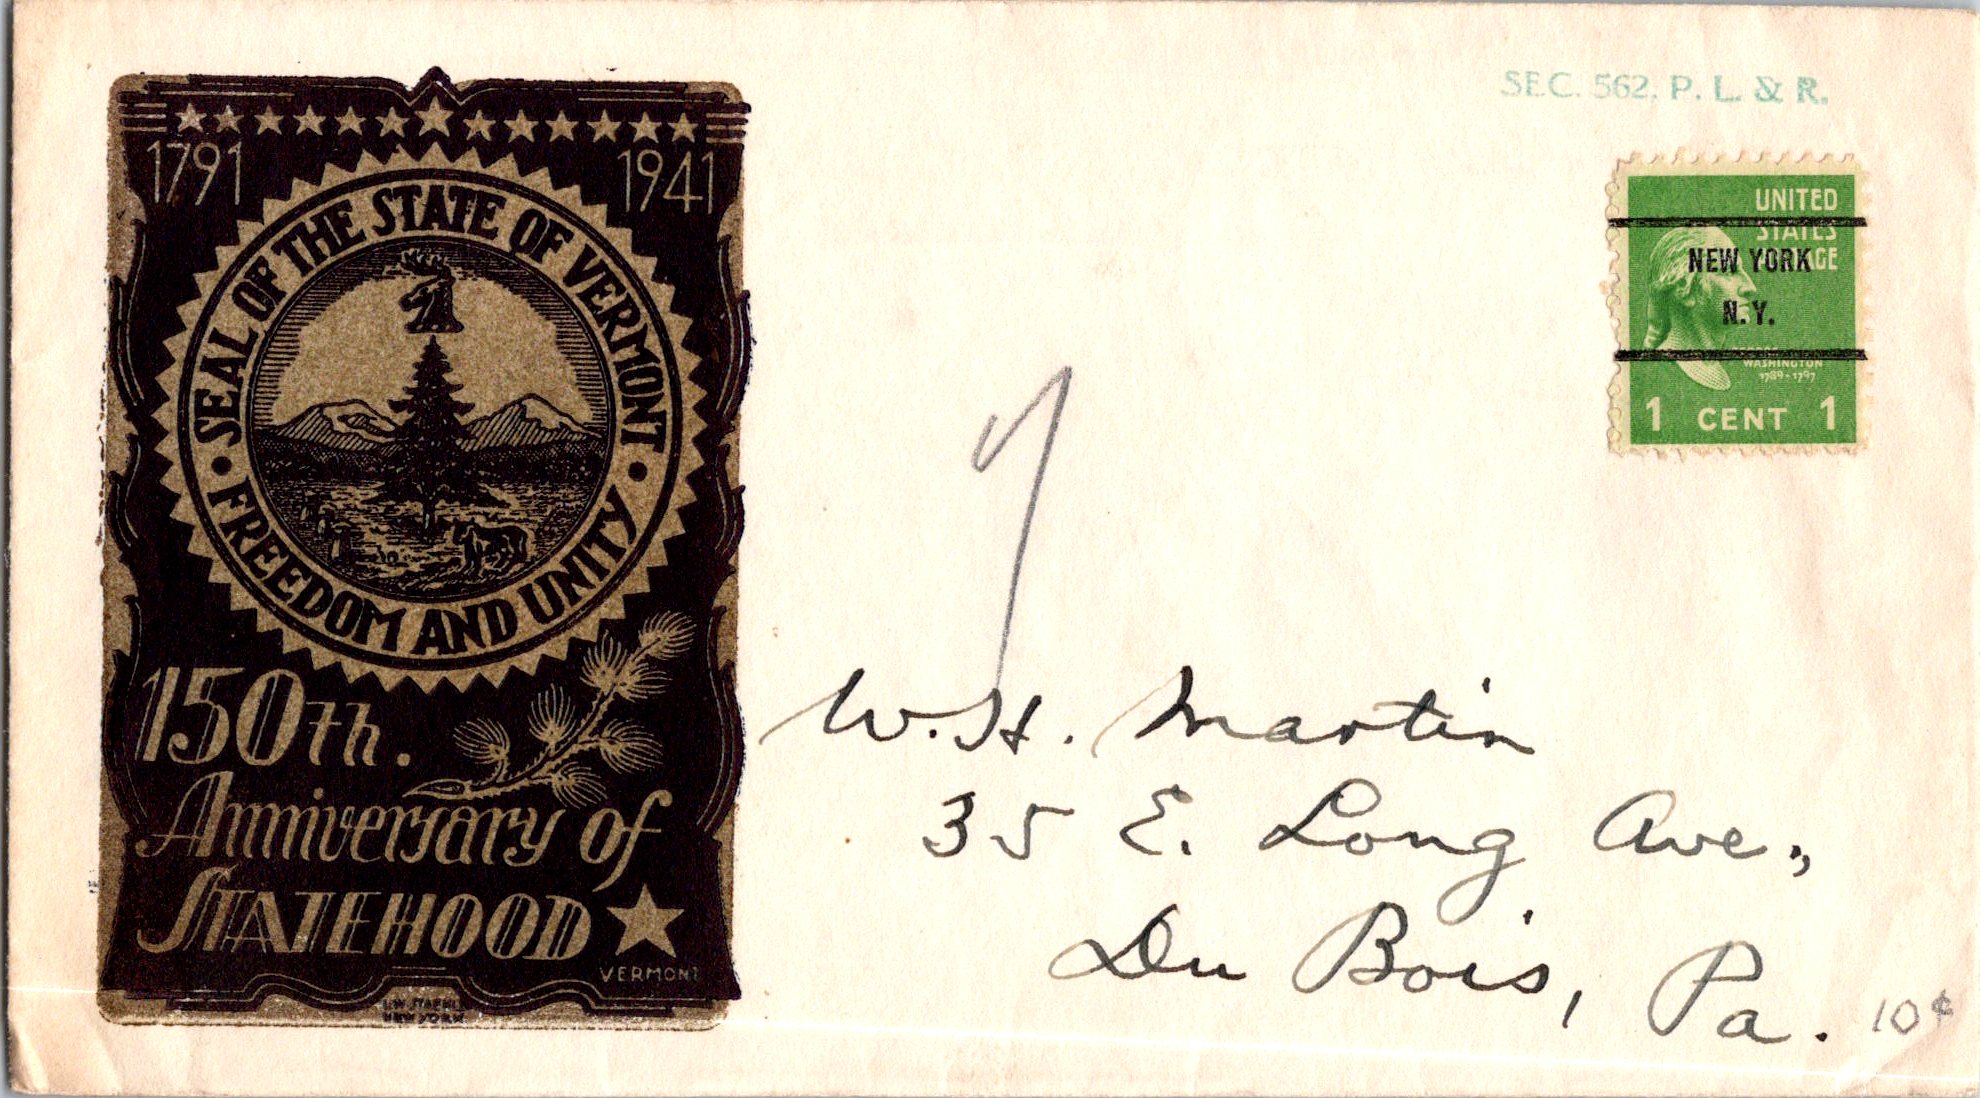 SEC. 562, P. L. & R.
1791
1941
SEAL OF THE STATE OF VERMONT
FREEDOM AND UNITY
150th.
Anniversary of
STATEHOOD
VERMONT
NEW YORK
UNITED
STATES
NEW YORK
N.Y.
WASHINGTON
1789-1797
1 CENT 1
W. H. Martin
35 E. Long Ave.,
Du Bois, Pa.
10¢